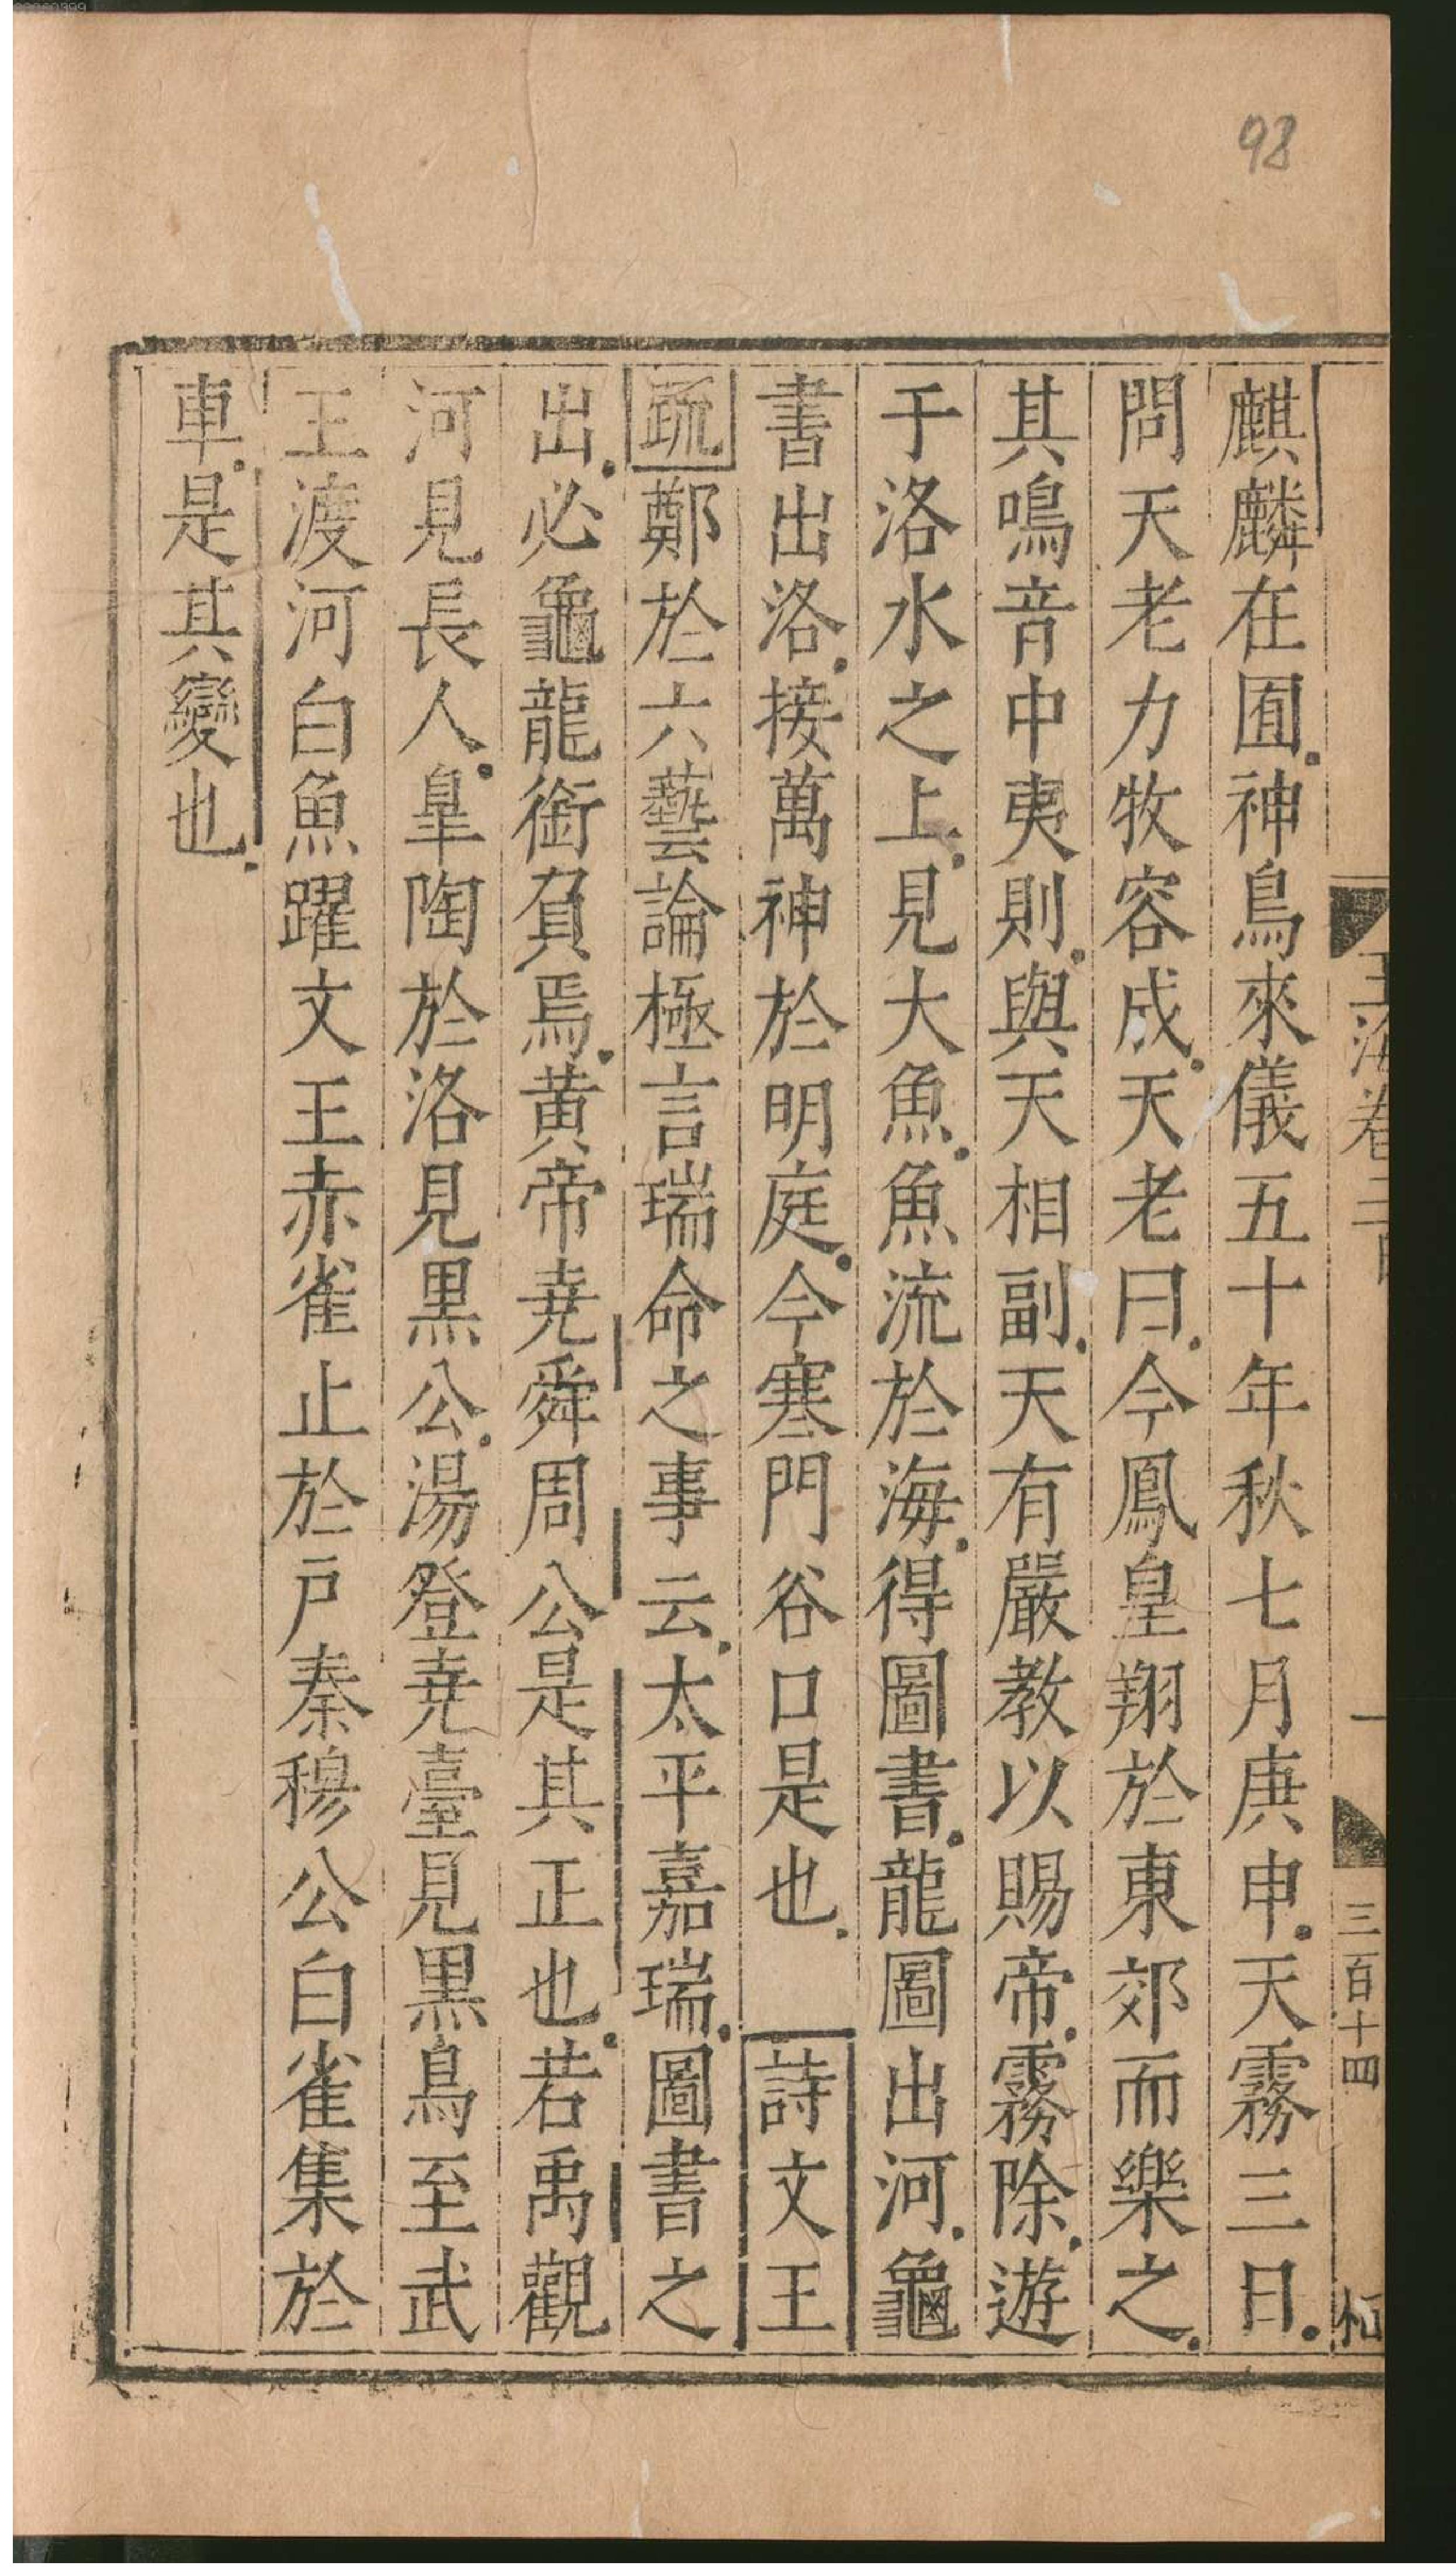 98
三百十四
麒麟在囿神鳥來儀五十年秋七月庚申天霧三日
問天老力牧容成天老曰今鳳皇翔於東郊而樂之
其鳴音中夷則與天相副天有嚴教以賜帝霧除遊
于洛水之上見大魚魚流於海得圖書龍圖出河龜
書出洛接萬神於明庭今寒門谷口是也 詩文王
疏鄭於六藝論極言瑞命之事云太平嘉瑞圖書之
出必龜龍銜負焉黄帝尭舜周公是其正也若禹觀
河見長人臯陶於洛見黒公湯登尭臺見黒鳥至武
王渡河白魚躍文王赤雀止於戸秦穆公白雀集於
車是其變也